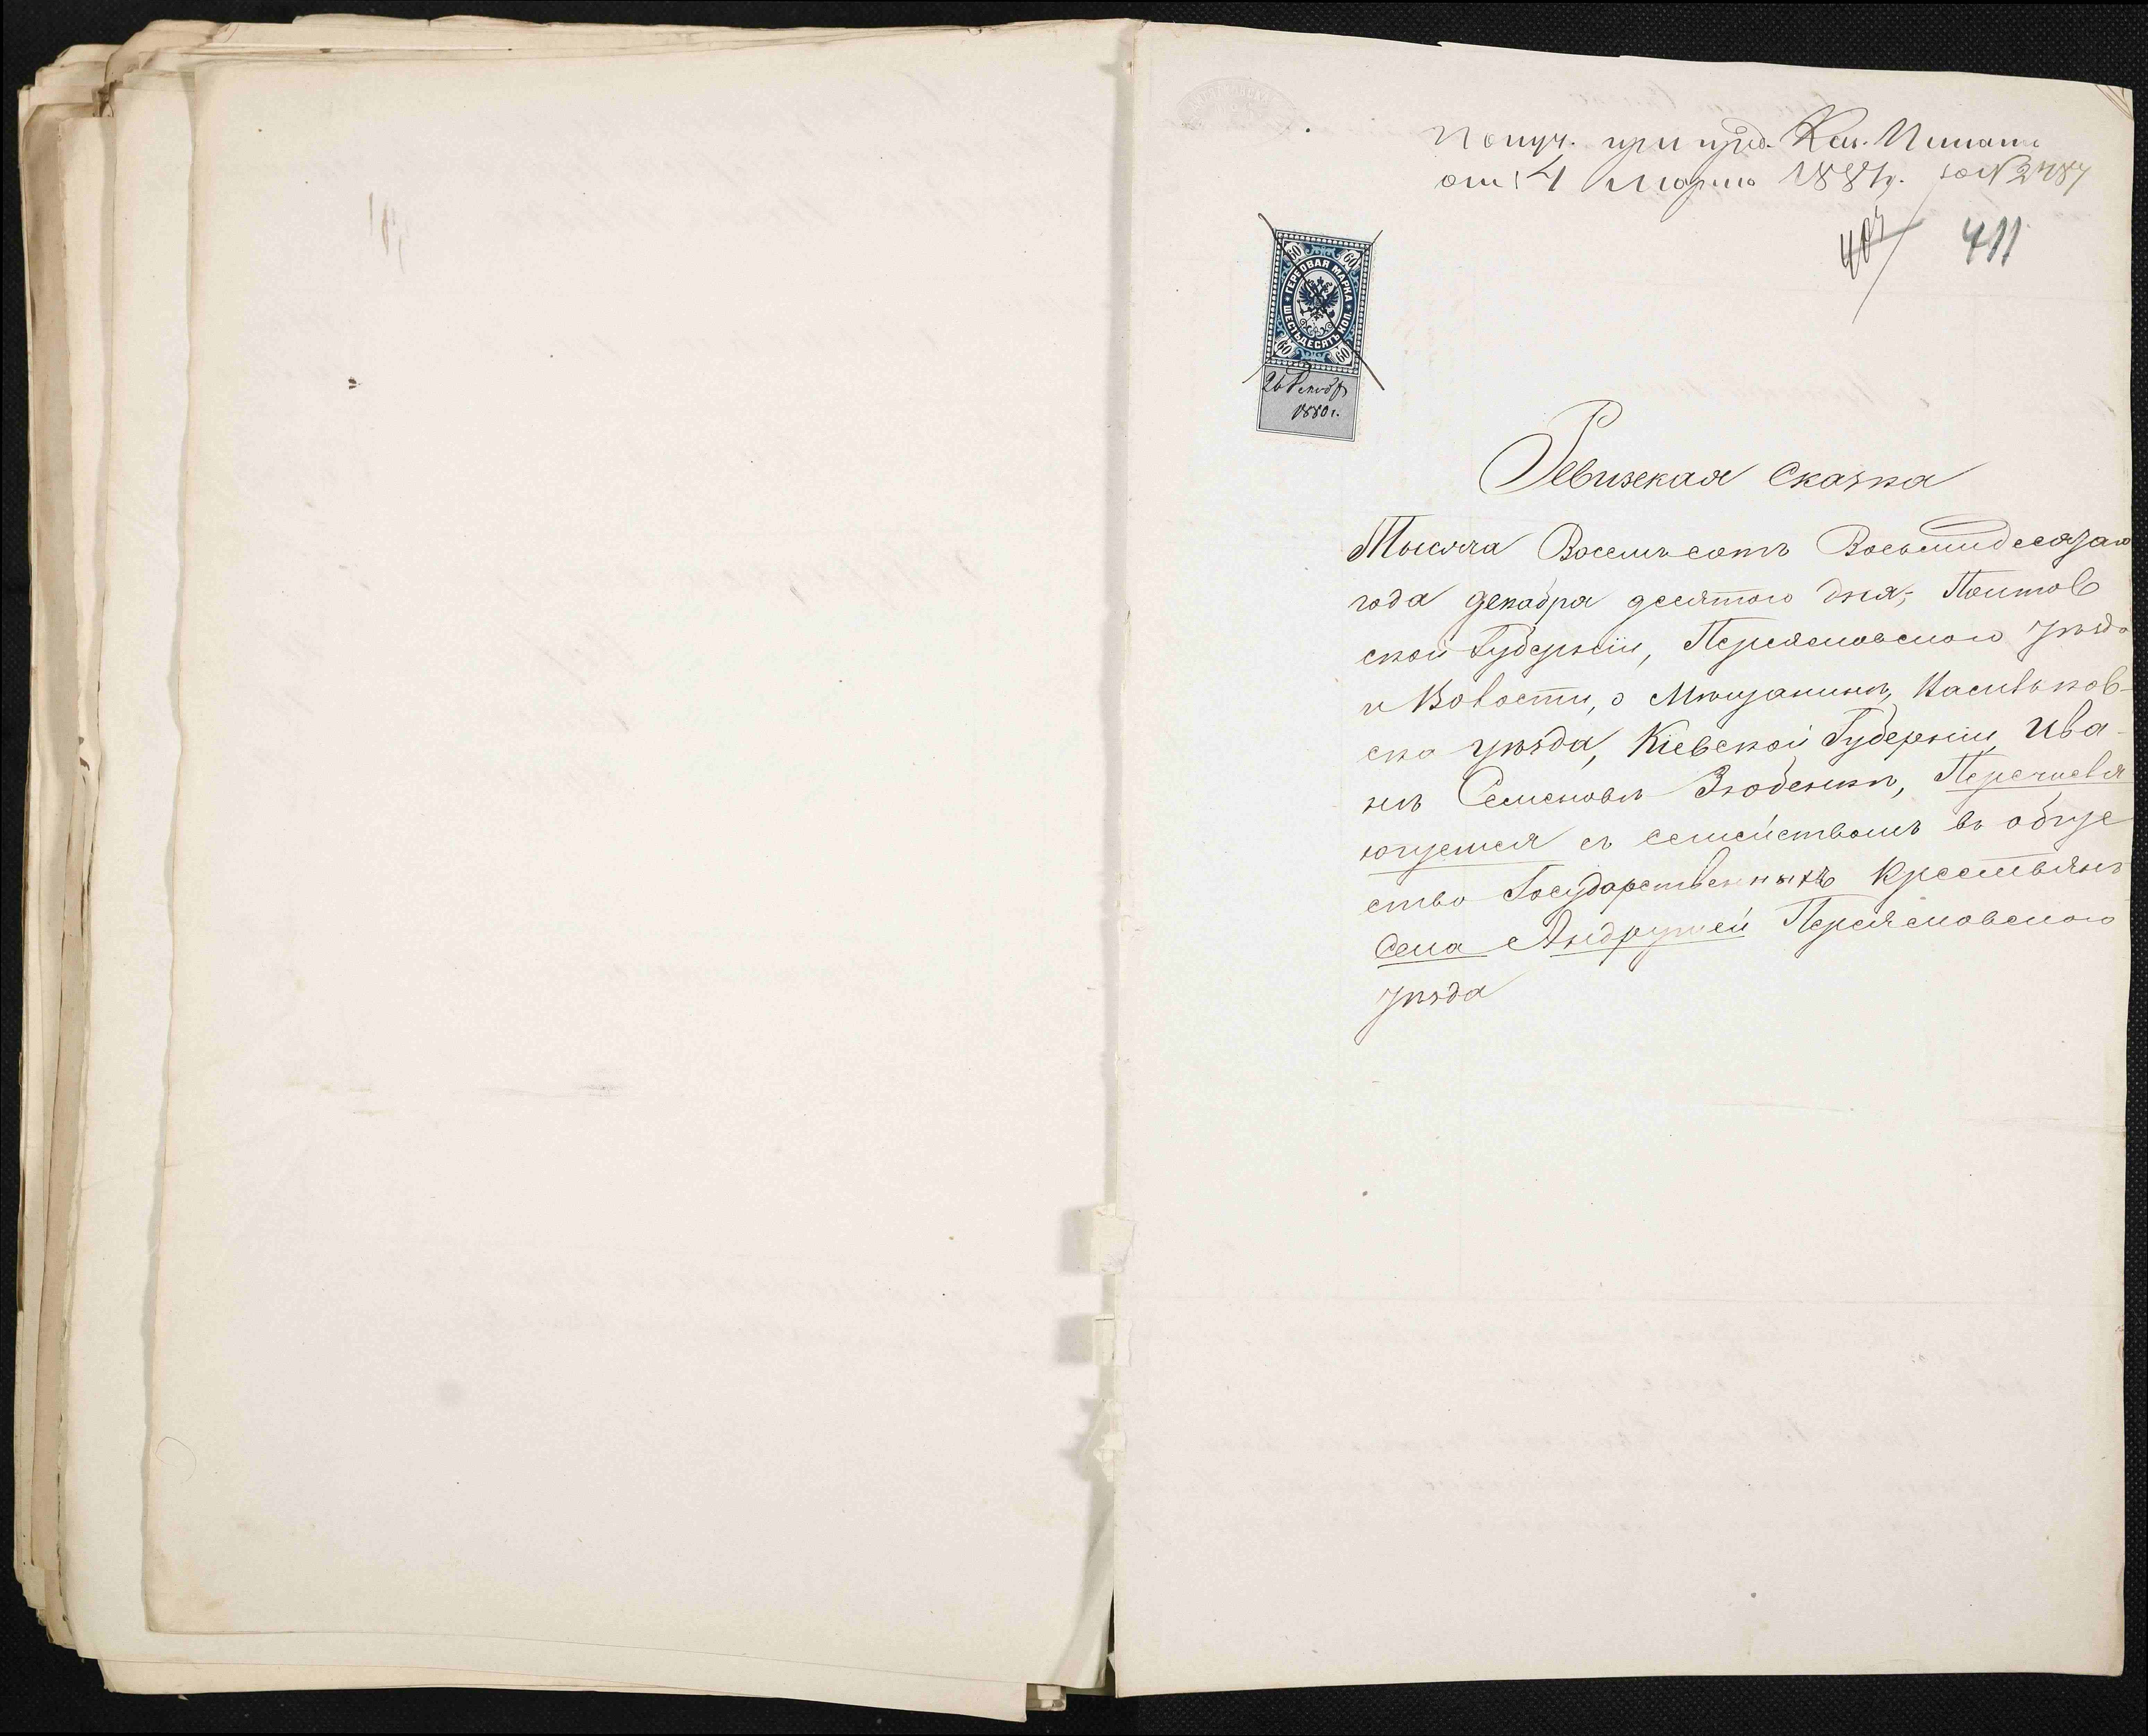 Получ. при пред. Каз. Палаты
от 4 Марта 1881 г. за № 2787
407 411
60 60
ГЕРБОВАЯ МАРКА
ШЕСТЬДЕСЯТЪ КОП.
60 60
26 Декабр
1880 г.
Ревизская Сказка
Тысяча Восемьсотъ Восьмидесятаго
года декабря десятого дня, Полтов
ской Губерніи, Переясловского уѣзда
и Волости, о Мѣщанинѣ, Васильков-
ско уѣзда, Кіевской Губерніи, Ива-
нѣ Семеновѣ Зюбенкѣ, Перечисля
ющемся съ семействомъ въ обще
ство Государственныхъ Крестьянъ
Села Андрушей Переясловского
уѣзда